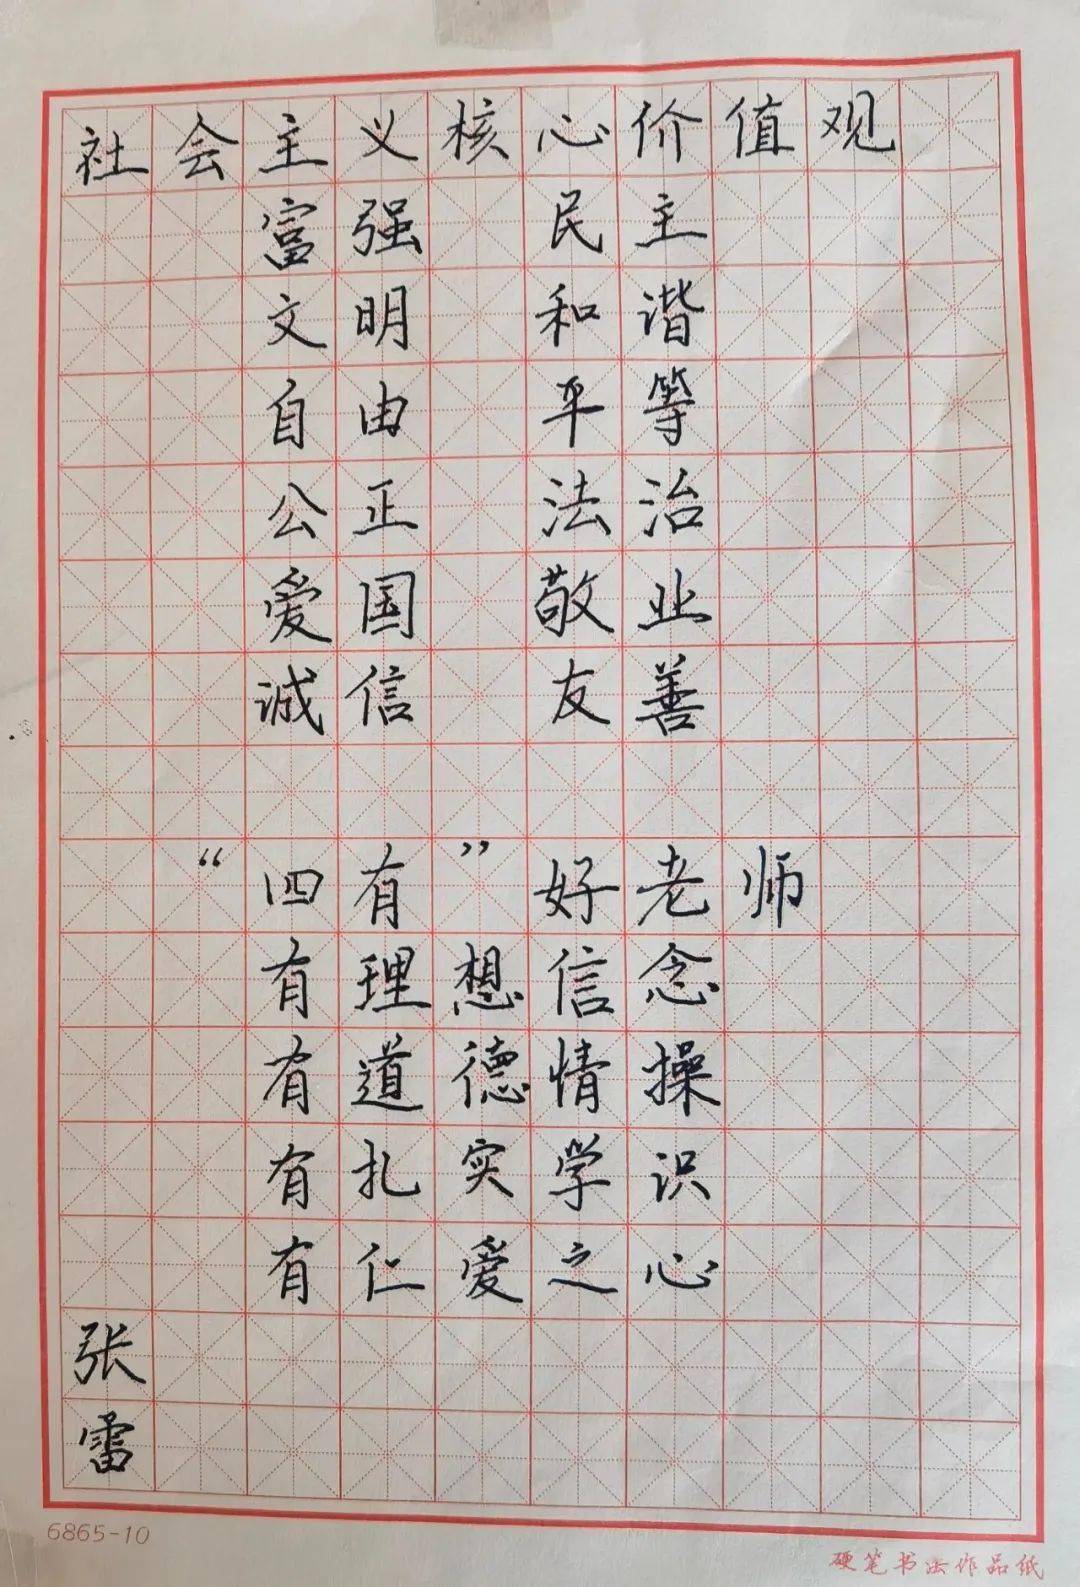 社会主义核心价值观
富强 民主
文明 和谐
自由 平等
公正 法治
爱国 敬业
诚信 友善
“四有”好老师
有理想信念
有道德情操
有扎实学识
有仁爱之心
张
雷
6865-10
硬笔书法作品纸